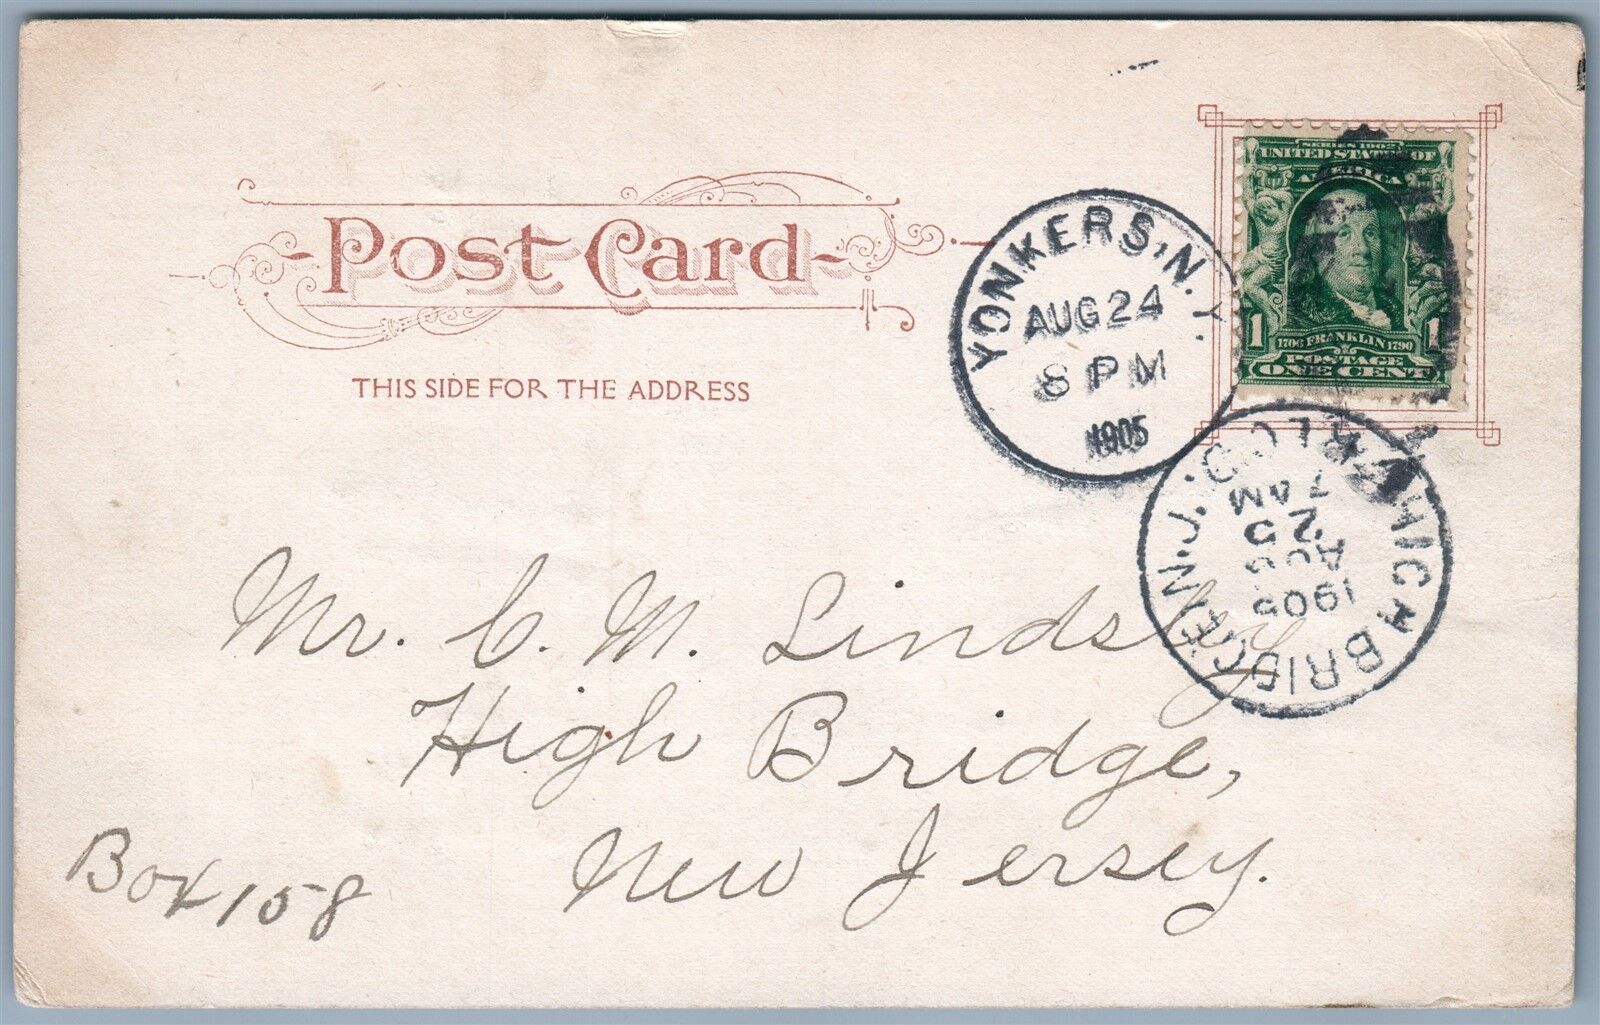 Post Card
THIS SIDE FOR THE ADDRESS
SERIES 1902
UNITED STATES OF
AMERICA
1706 FRANKLIN 1790
1 1
POSTAGE
ONE CENT
YONKERS, N.Y.
AUG 24
8 PM
1905
HIGH BRIDGE, N.J.
7 AM
AUG 25
1905
Mr. C. M. Lindsley
High Bridge,
New Jersey.
Box 158